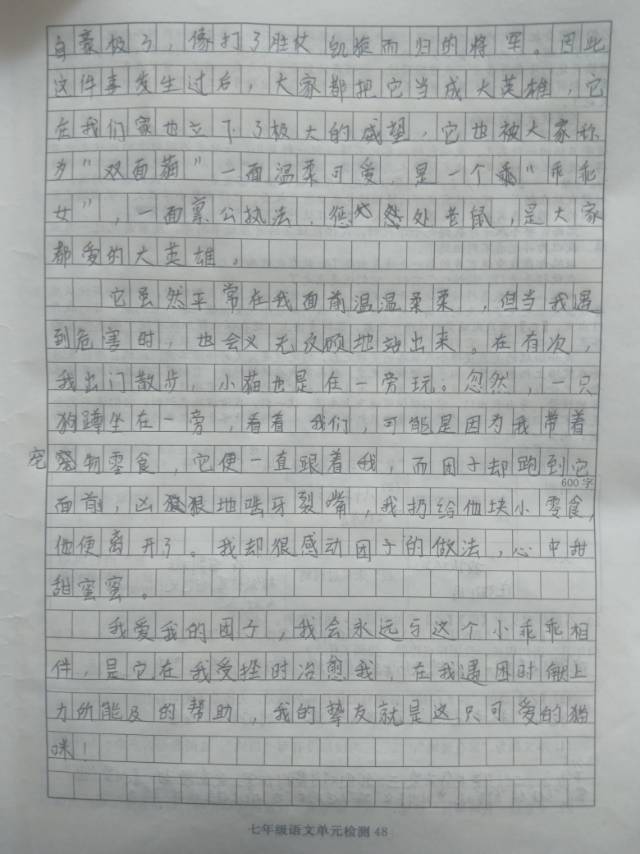 自豪极了，像打了胜仗凯旋而归的将军。因此
这件事发生过后，大家都把它当成大英雄，它
在我们家也立下了极大的威望，它也被大家称
为“双面猫”一面温柔可爱，是一个乖“乖乖
女”，一面禀公执法，惩处老鼠，是大家
都爱的大英雄。
它虽然平常在我面前温温柔柔，但当我遇
到危害时，也会义无反顾地站出来。在有次，
我出门散步，小猫也是在一旁玩。忽然，一只
狗蹲坐在一旁，看着我们，可能是因为我带着
宠物零食，它便一直跟着我，而团子却跑到它
600字
面前，凶狠狠地龇牙裂嘴，我扔给他块小零食，
他便离开了。我却很感动团子的做法，心中甜
甜蜜蜜。
我爱我的团子，我会永远与这个小乖乖相
伴，是它在我受挫时治愈我，在我遇困时献上
力所能及的帮助，我的挚友就是这只可爱的猫
咪！
七年级语文单元检测 48